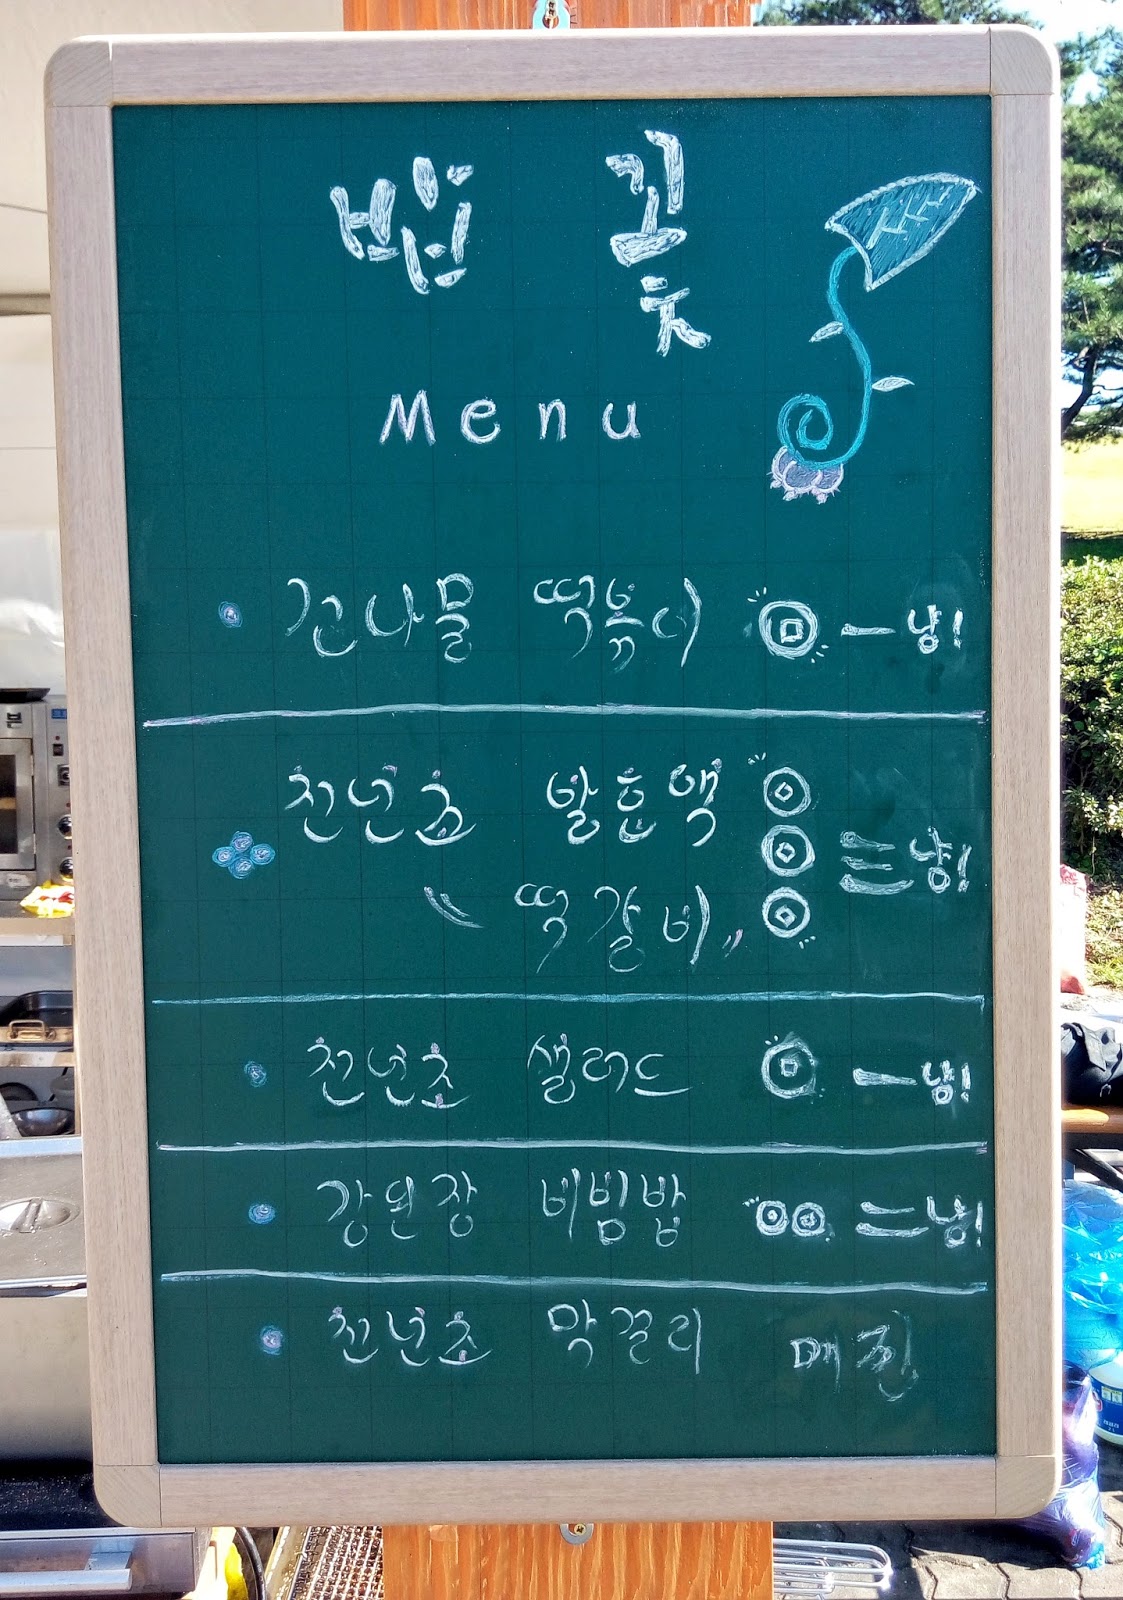 빈 꽃
Menu
건나물 떡볶이 一냥!
천년초 발효액
"떡갈비" 三냥!
천년초 샐러드 一냥!
강된장 비빔밥 二냥!
천년초 막걸리 매진